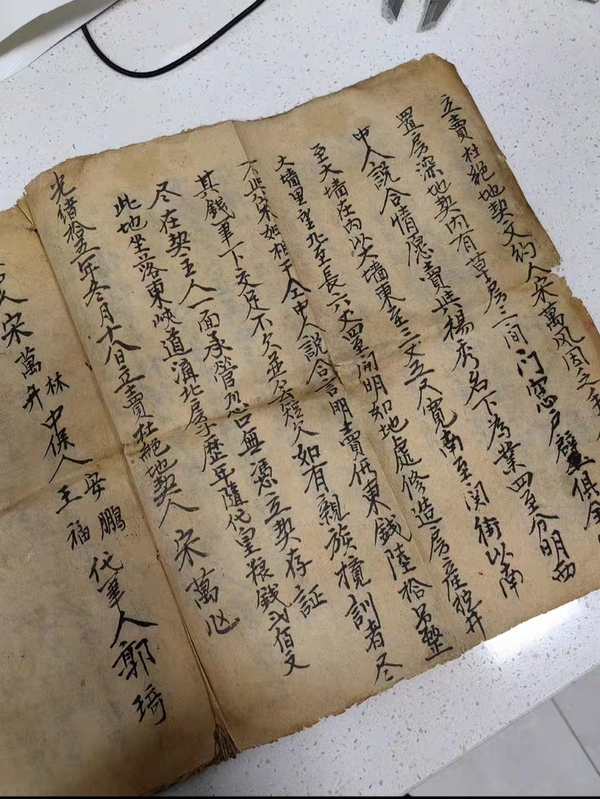 立賣杜絕地契文約人宋萬风因之手
置房深地契内有草房三间门窓户壁俱全
中人説合情愿賣與楊秀名下為業四至分明西
至大墙在内以大墙東至三丈五尺寬南至関街以南
大墙里至北至長六丈四至開明如地處修造房産打井
不與宋姓相干仝中人説合言明賣价東錢陸拾吊整
其錢筆下交足不欠並無短欠如有親族攪訓者尽
尽在契主人一面承管恐口無憑立契存証
此地坐落東峡道溝北房子歷年隨代皇粮錢弍佰文
光緒拾五年冬月十八日立賣杜絕地契人 宋萬
宋萬升
林
中保人 王福
安鵬
代筆人 郭琦